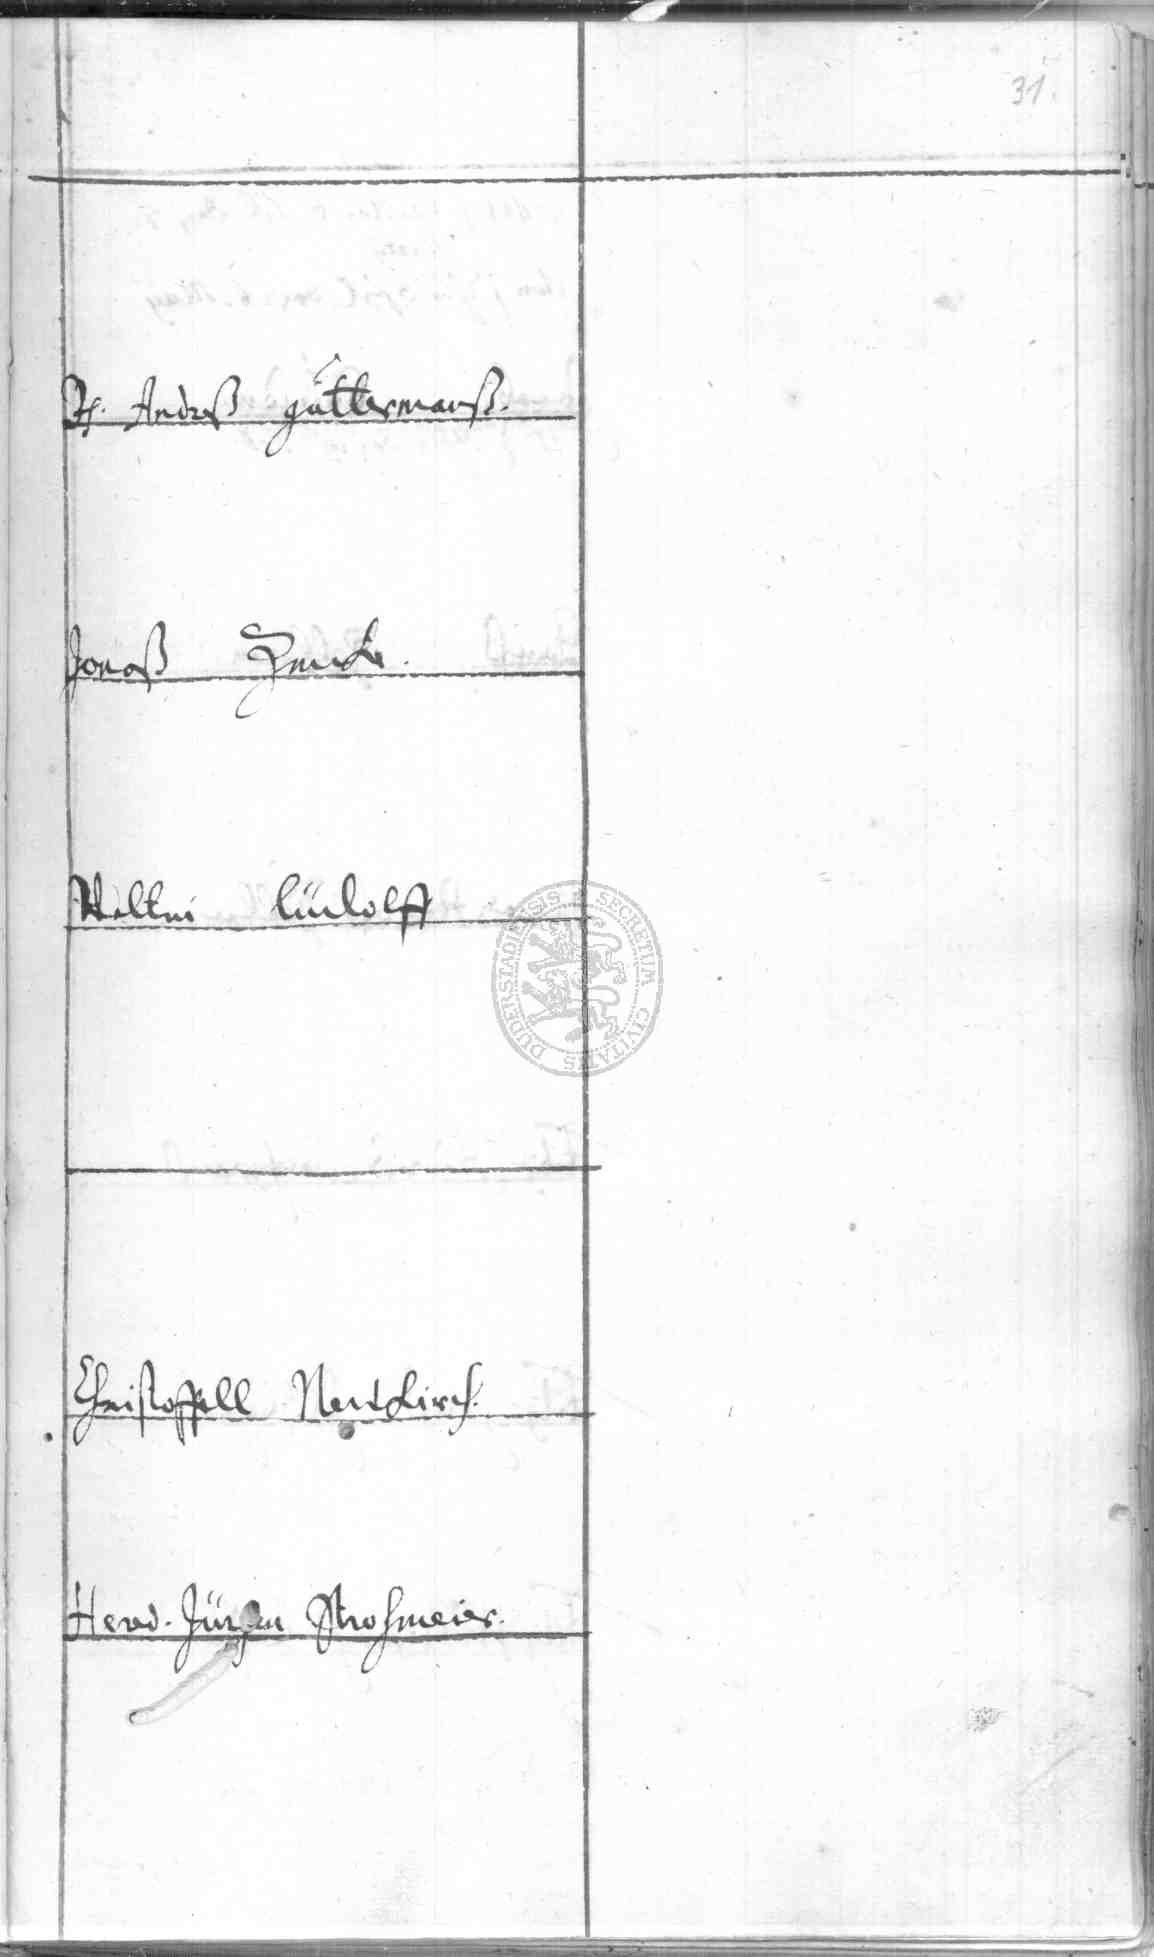 31.
H. Andreß güttermanß.
Jonaß Henck
lüdolff
Christoffell Neükirch.
Henrd. Jürgen Strohmeier.
SECRETUM CIVITATIS DUDERSTADIENSIS